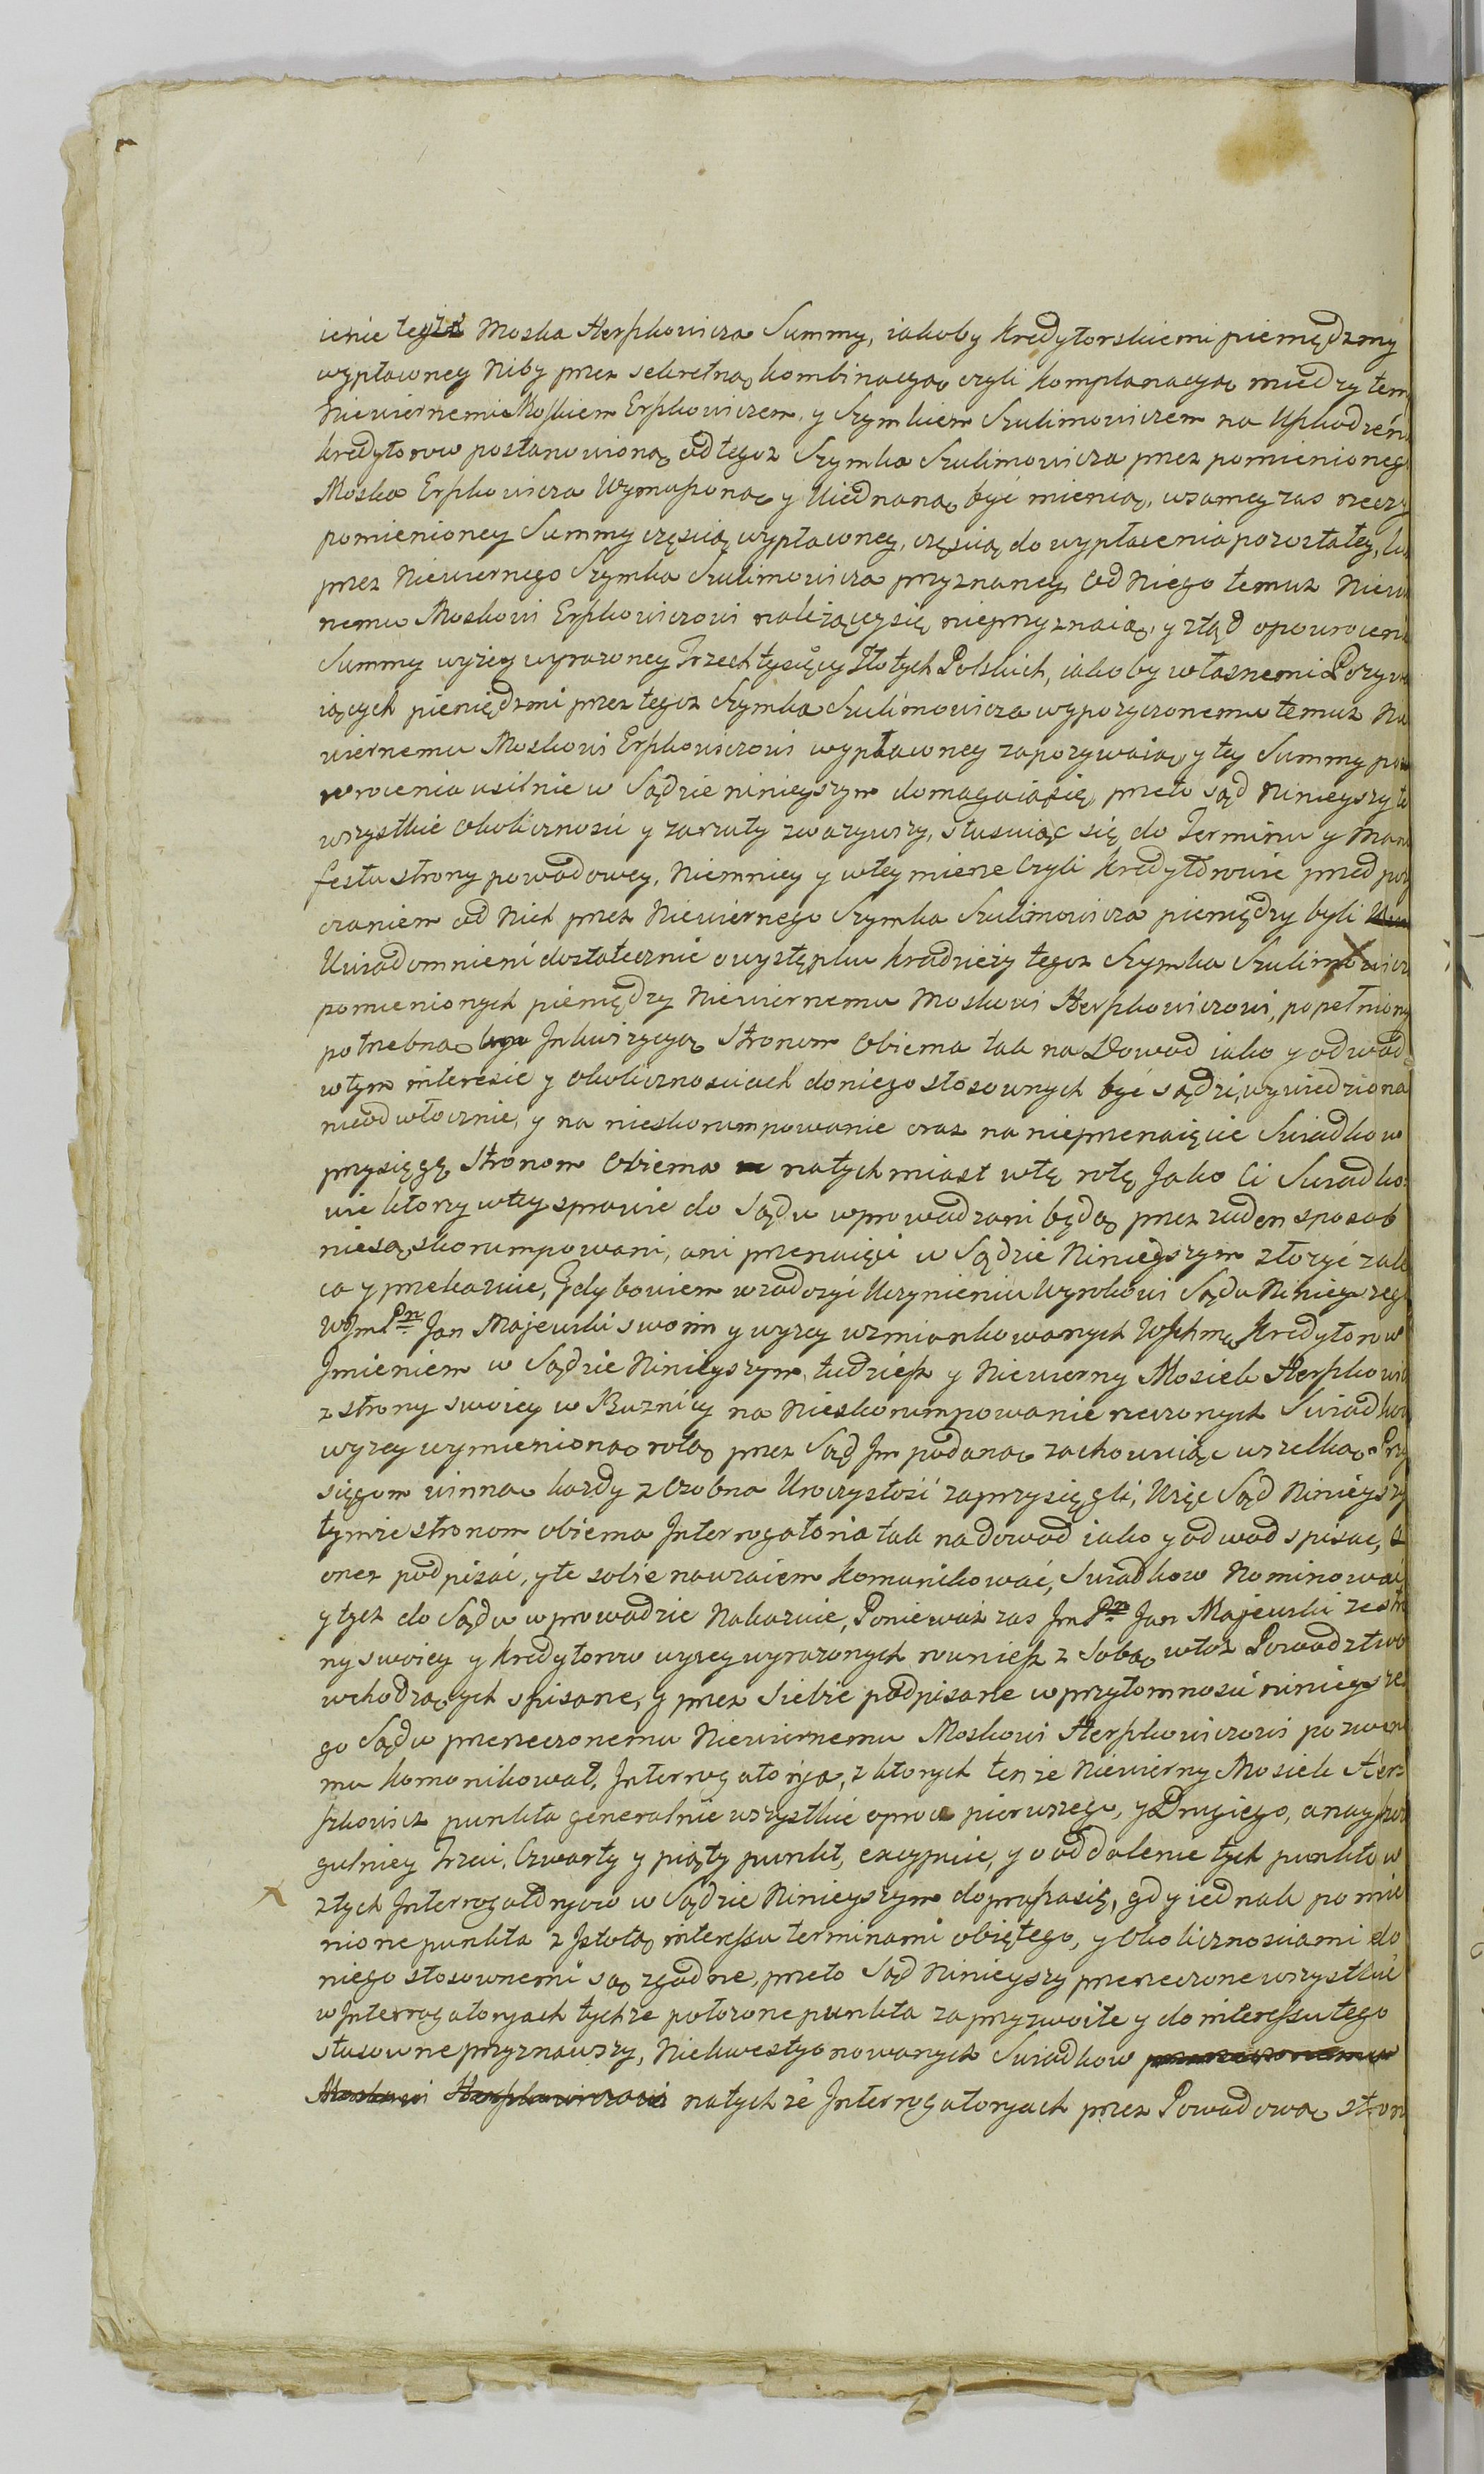 ienie tegoż Moska Herszkowicza Summy, iakoby kredytorskiemi pieniędzmy
wypłaconey Niby przez sekretną kombinacyą czyli komplanacyą między tem
Niewiernemi Moszkiem Erszkowiczem, y Szymkiem Szulimowiczem na Uszkodzen
kredytorow postanowioną od tegoż Szymka Szulimowicza przez pomienioneg
Moska Erszkowicza Wymaszoną y Uiednaną być mienią, wsamey zas rzeczy
pomienioney Summy częscią wypłaconey, częscią do wypłacenia pozostałey,
przez Niewiernego Szymka Szulimowicza przyznaney Od Niego temuz Niew
nemu Moskowi Erszkowiczowi należącey się nieprzyznaią, y ztąd opowroceni
Summy wyżey wyrazoney Trzech tysięcy Złotych Polskich, iakoby własnemi Pozyw
iących pieniędzmi przez tegoz Szymka Szulimowicza wypozyczonemu temuz Na
wiernemu Moskowi Erszkowiczowi wypłaconey zapozywaią y tey Summy pow
wrocenia usilnie w Sądzie ninieyszym domagaią się, przeto Sąd Ninieyszy te
wszystkie Okolicznosci y zarzuty zwazywszy, stusuiąc się do Terminu y Mani
festu strony powodowey, Niemniey y wtey mierze Czyli kredytorowie przed poz
czaniem od Nich przez Niewiernego Szymka Szulimowicza pieniędzy byli
Uwiadomnieni dostatecznie owystępku kradzieży tegoz Szymka Szulimowicz
pomienionych pieniędzy Niewiernemu Moskowi Herszkowiczowi, popełniony
potrzebną Inkwizycyą Stronom Obiema tak na Dowod iako y odwod
wtym interesie y Okolicznosciach doniego stosownych być sądzi, wywiedziona
nieodwłocznie, y na nieskorumpowanie oraz na nieprzenaięcie Swiadkow
przysięgę Stronom Obiema natychmiast wtę rotę Jako Ci Swiadko
wie ktorzy wtey sprawie do Sądu wprowadzani będą przez żaden sposob
niesą skorumpowani, ani przenaięci w Sądzie Ninieyszym złożyć zale
ca y przekazuie, Gdy bowiem wzadosyć Uczynieniu Wyrokowi Sądu Ninieyszeg
WJm Pn Jan Majewski swoim y wyzey wzmiankowanych WJchmę Kredytorow
Jmieniem w Sądzie Ninieyszym, tudziesz y Niewierny Mosiek Herszkowic
z strony swoiey w Buznicy na Nieskorumpowanie rzeczonych Swiadkow
wyzey wymienioną rotą przez Sąd Im podaną zachowuiąc wszelką Prz
sięgom winną kazdy z Osobna Uroczystość zaprzysięgli, Więc Sąd Ninieyszy
tymze stronom obiema Interrogatoria tak na dowod iako y odwod spisać,
onez podpisać, y te sobie nawzaiem komunikować, Swiadkow Nominować
y tych do Sądu wprowadzic Nakazuie, Poniewaz zas Jm Pn Jan Majewski zestro
ny swoiey y kredytorow wyzey wyrazonych rownież z Sobą wtoz Powodztwo
wchodzących spisane, y przez Siebie podpisane wprzytomnosci ninieysze
go Sądu przerzeczonemu Niewiernemu Moskowi Herszkowiczowi pozwane
mu komonikował, Interrogatorya, z ktorych tenze Niewierny Mosiek Hersz
szkowicz punkta generalnie wszystkie oprocz pierwszego, y Drugiego, anayszcz
gulniey Trzeci, Czwarty y piąty punkt, excypuie, y o oddalenie tych punktow
ztych Interrogatoryow w Sądzie Ninieyszym doprasza się, gdy iednak pomie
nione punkta z Jstotą interessu terminami obiętego, y Okolicznosciami do
niego stosownemi są zgodne, przeto Sąd Ninieyszy przerzeczone wszystkie
w Interrogatoryach tychze położone punkta zaprzyzwoite y do interessu tego
stusowne przyznawszy, Niekwestyonowanych Swiadkow przerzeczonemu
Moskowi Herszkowiczowi natychże Interrogatoryach przez Powodową stron